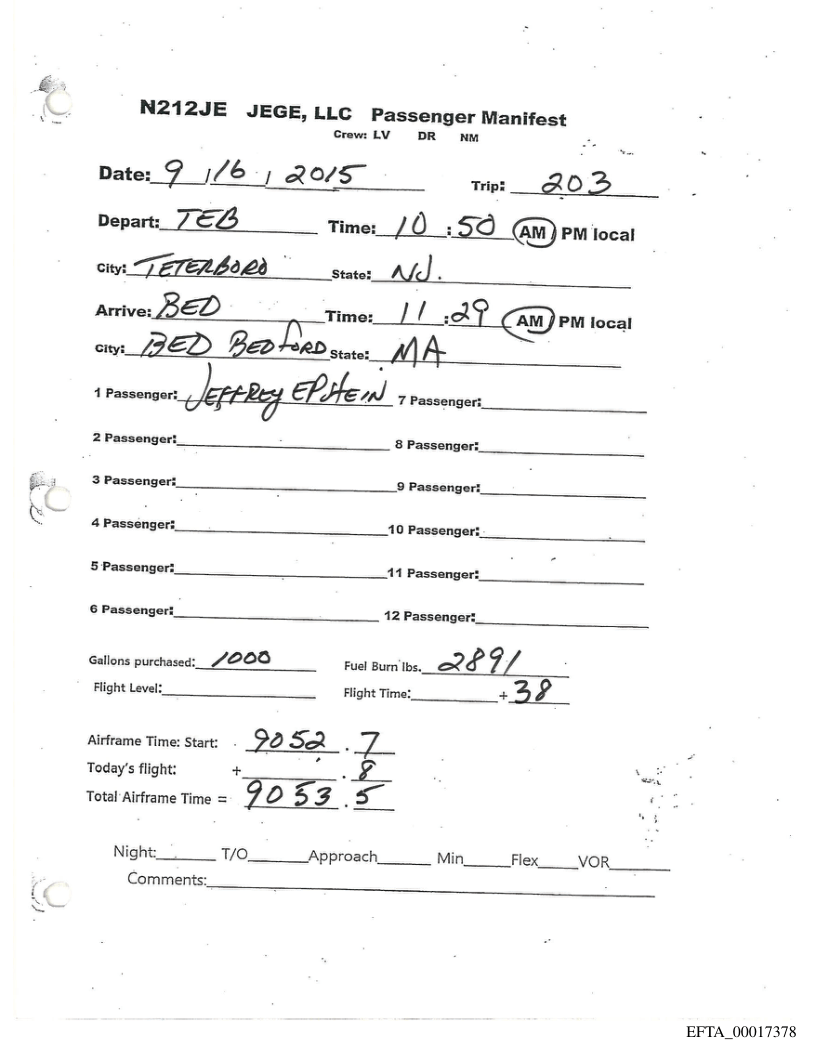 N212JE JEGE, LLC Passenger Manifest
Crew: LV DR NM
Date: 9 / 16 / 2015 Trip: 203
Depart: TEB Time: 10 : 50 AM PM local
City: TETERBORO State: NJ.
Arrive: BED Time: 11 : 29 AM PM local
City: BED BEDFORD State: MA
1 Passenger: JEFFREY EPSTEIN 7 Passenger:
2 Passenger: 8 Passenger:
3 Passenger: 9 Passenger:
4 Passenger: 10 Passenger:
5 Passenger: 11 Passenger:
6 Passenger: 12 Passenger:
Gallons purchased: 1000 Fuel Burn lbs. 2891
Flight Level: Flight Time: + 38
Airframe Time: Start: 9052 . 7
Today's flight: + . 8
Total Airframe Time = 9053 . 5
Night: T/O Approach Min Flex VOR
Comments:
EFTA_00017378